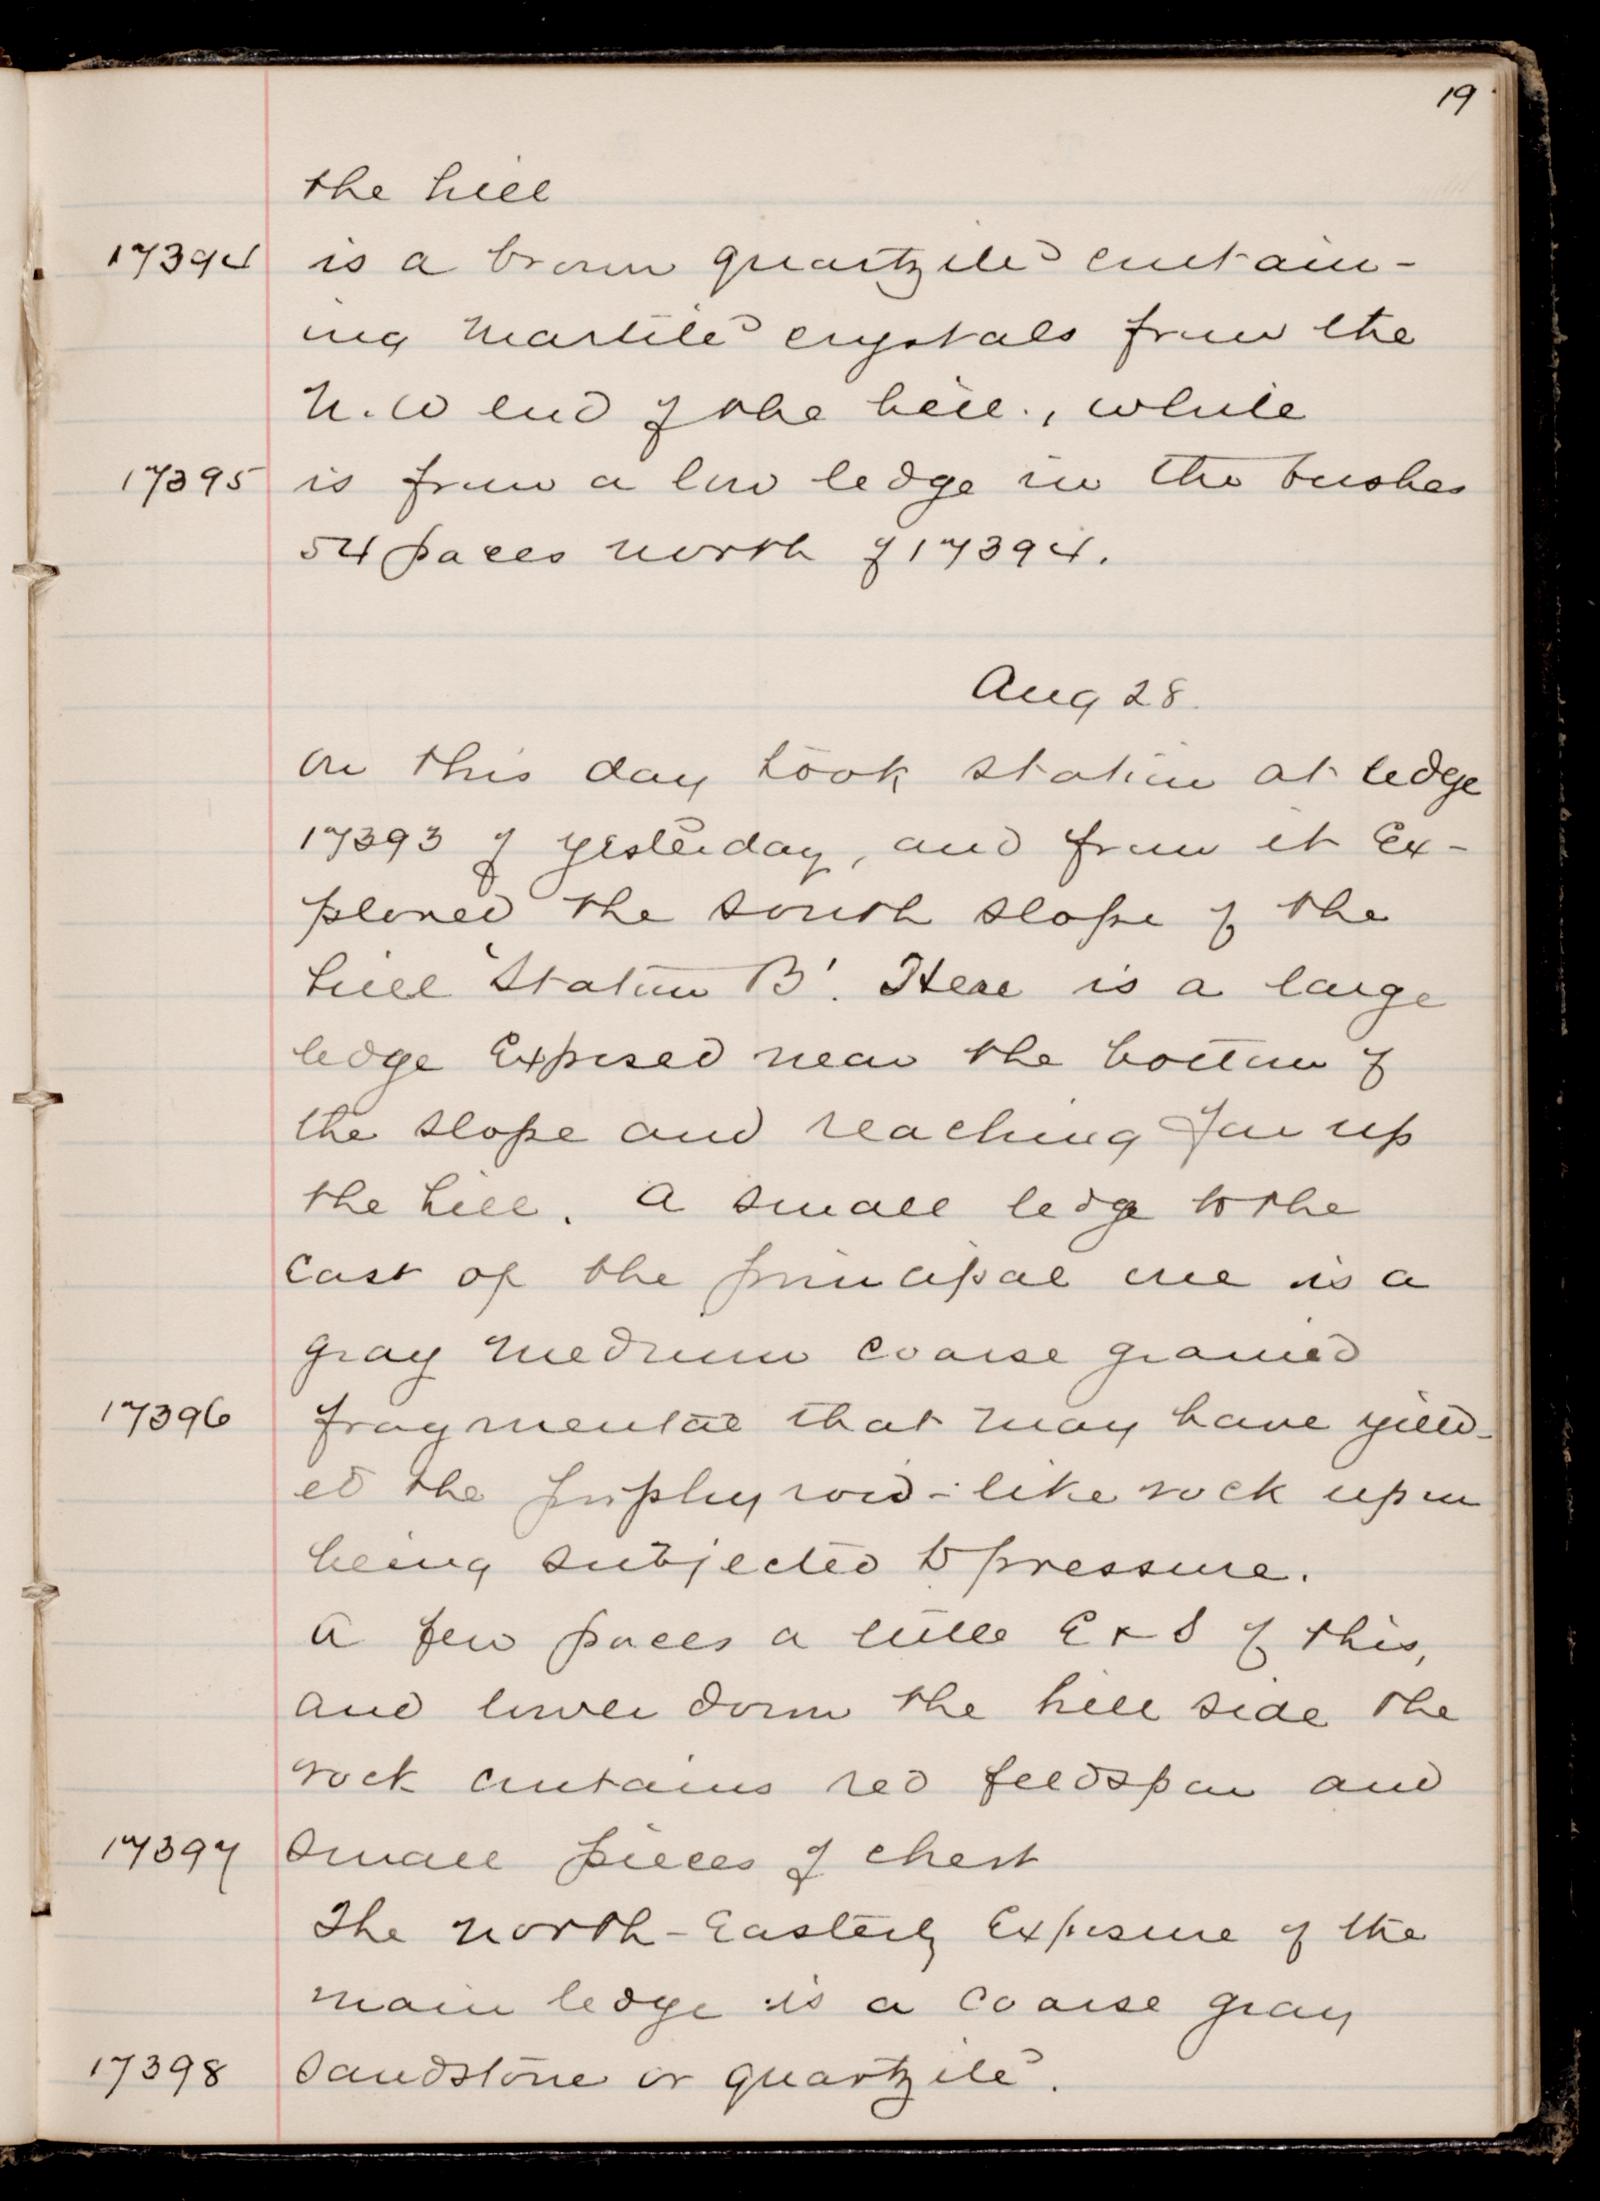 19
the hill
17394 is a brown quartzite contain-
ing martite crystals from the
N.W end of the hill., while
17395 is from a low ledge in the bushes
54 paces north of 17394.
Aug 28.
On this day took station at ledge
17393 of yesterday, and from it Ex-
plored the south slope of the
hill 'Station B'. Here is a large
ledge Exposed near the bottom of
the slope and reaching far up
the hill. A small ledge to the
East of the principal one is a
gray medium coarse grained
17396 fragmental that may have yield-
ed the porphyroid-like rock upon
being subjected to pressure.
A few paces a little E & S of this,
and lower down the hill side the
rock contains red feldspar and
17397 small pieces of chert
The north-Easterly Exposure of the
main ledge is a coarse gray
17398 sandstone or quartzite.